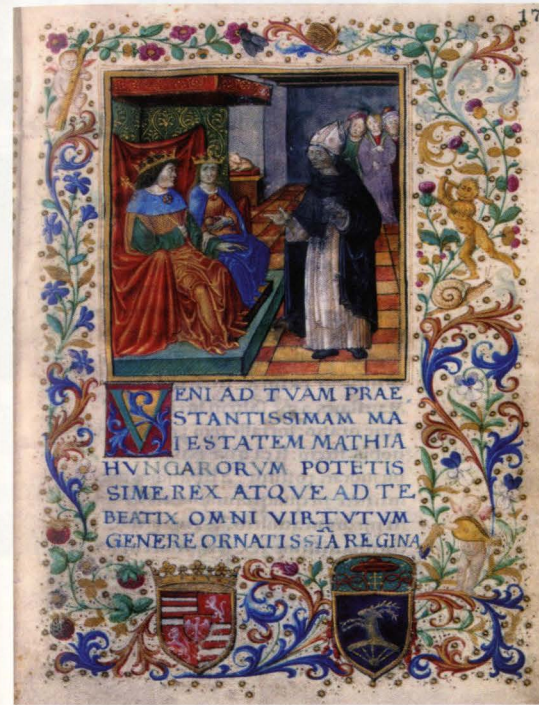 17
VENI AD TVAM PRAE,
STANTISSIMAM MA
IESTATEM MATHIA
HVNGARORVM POTETIS
SIME REX ATQVE AD TE
BEATIX OMNI VIRTVTVM
GENERE ORNATISSIA REGINA